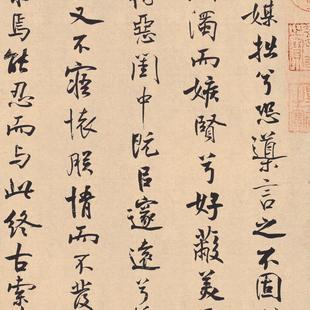 媒拙兮恐導言之不固
濁而嫉賢兮好蔽美
惡閨中既㠯邃遠兮
又不寤懷朕情而不發
焉能忍而与此終古索